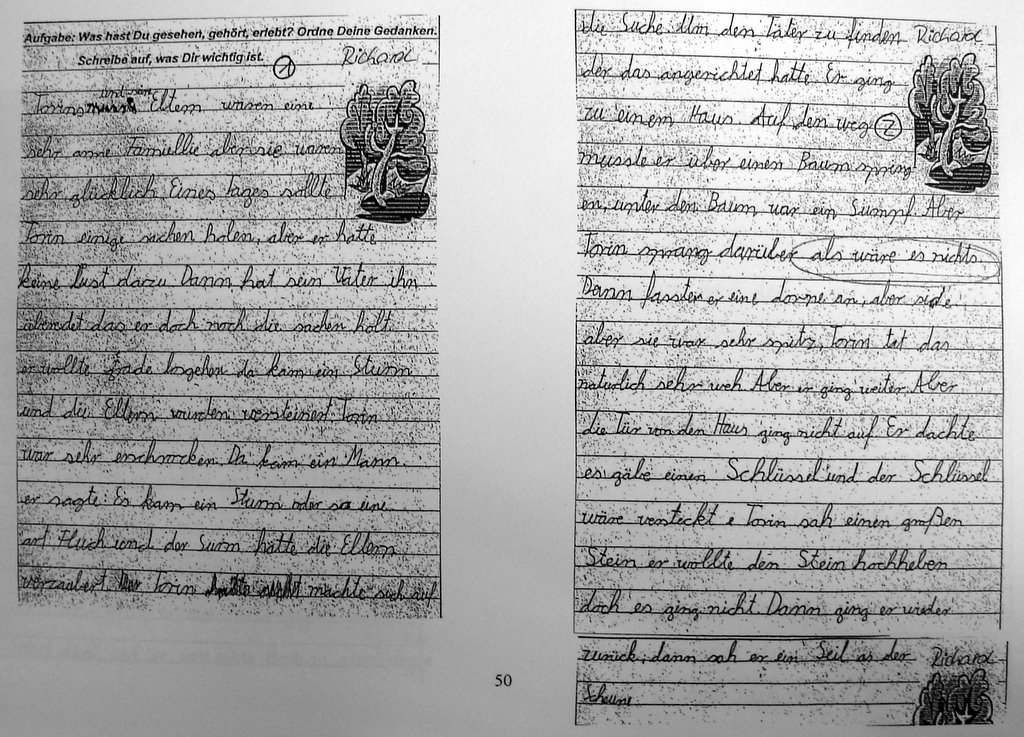 Aufgabe: Was hast Du gesehen, gehört, erlebt? Ordne Deine Gedanken.
Schreibe auf, was Dir wichtig ist. 1 Richard
und seine
Torins Eltern waren eine
sehr arme Famiellie aber sie waren
sehr glücklich Eines tages sollte
Torin einige sachen holen, aber er hatte
keine Lust dazu Dann hat sein Vater ihn
überredet das er doch noch die sachen holt
er wollte grade losgehen da kam ein Sturm
und die Eltern wurden versteinert Torin
war sehr erschrocken. Da kam ein Mann.
er sagte: Es kam ein Sturm oder so eine
art Fluch und der Surm hatte die Eltern
verzaubert Torin machte sich auf
die Suche. Um den Täter zu finden Richard
der das angerichtet hatte. Er ging
zu einem Haus Auf den weg 2
musste er über einen Baum spring
en, unter den Baum war ein Sumpf. Aber
Torin sprang darüber als wäre es nichts.
Dann fasster er eine dorne an, aber
aber sie war sehr spitz, Torin tat das
natürlich sehr weh Aber er ging weiter. Aber
die Tür von den Haus ging nicht auf Er dachte
es gäbe einen Schlüssel und der Schlüssel
wäre versteckt Torin sah einen großen
Stein er wollte den Stein hochheben
doch es ging nicht Dann ging er wieder
zurück, dann sah er ein Seil an der Richard
Scheune
50